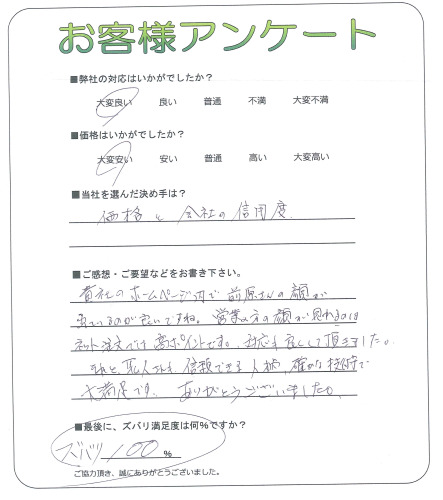 お客様アンケート
■弊社の対応はいかがでしたか?
大変良い 良い 普通 不満 大変不満
■価格はいかがでしたか?
大変安い 安い 普通 高い 大変高い
■当社を選んだ決め手は?
価格と会社の信用度
■ご感想・ご要望などをお書き下さい。
貴社のホームページ内で前原さんの顔が
出ているのが良いですね。営業の方の顔が見れるのは
ネット注文では高ポイントです。対応も良くして頂きました。
それと、職人さんも信頼できる人柄、確かな技術で
大満足です。ありがとうございました。
■最後に、ズバリ満足度は何%ですか?
ズバリ 100 %
ご協力頂き、誠にありがとうございました。